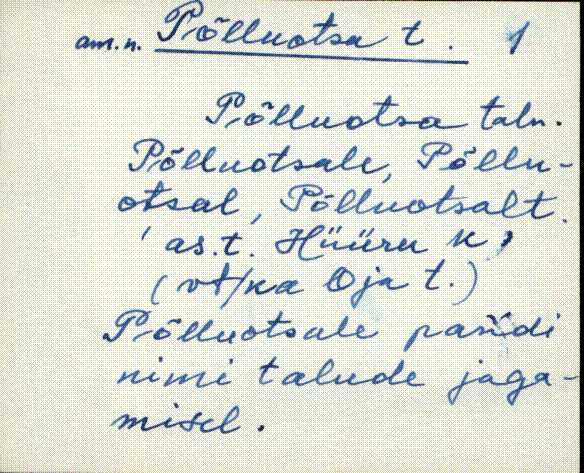 am.n. Põlluotsa t. 1
Põlluotsa talu.
Põlluotsale, Põllu-
otsal, Põlluotsalt.
as.t. Hüüru k.
(vt/ka Oja t.)
Põlluotsale pandi
nimi talude jaga-
misel.